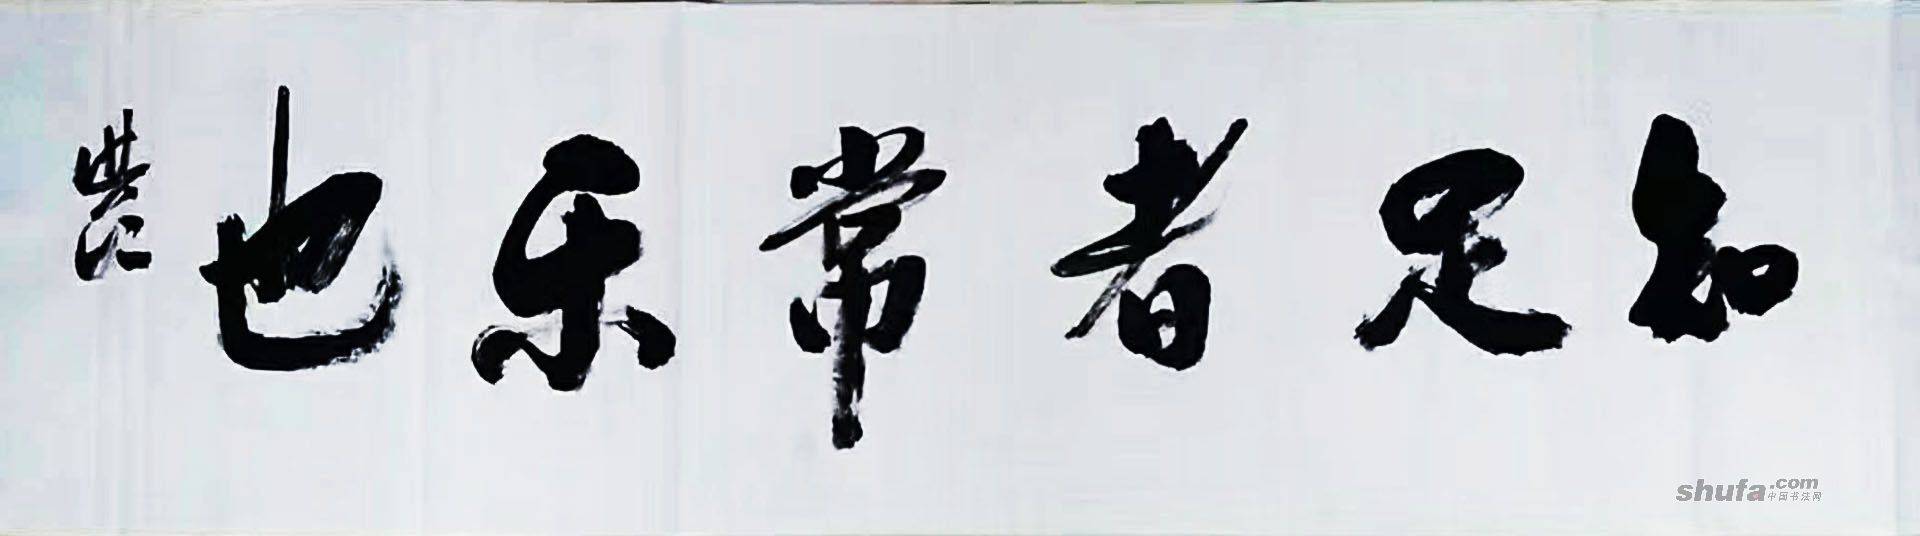 知足者常乐也
shufa.com
中国书法网